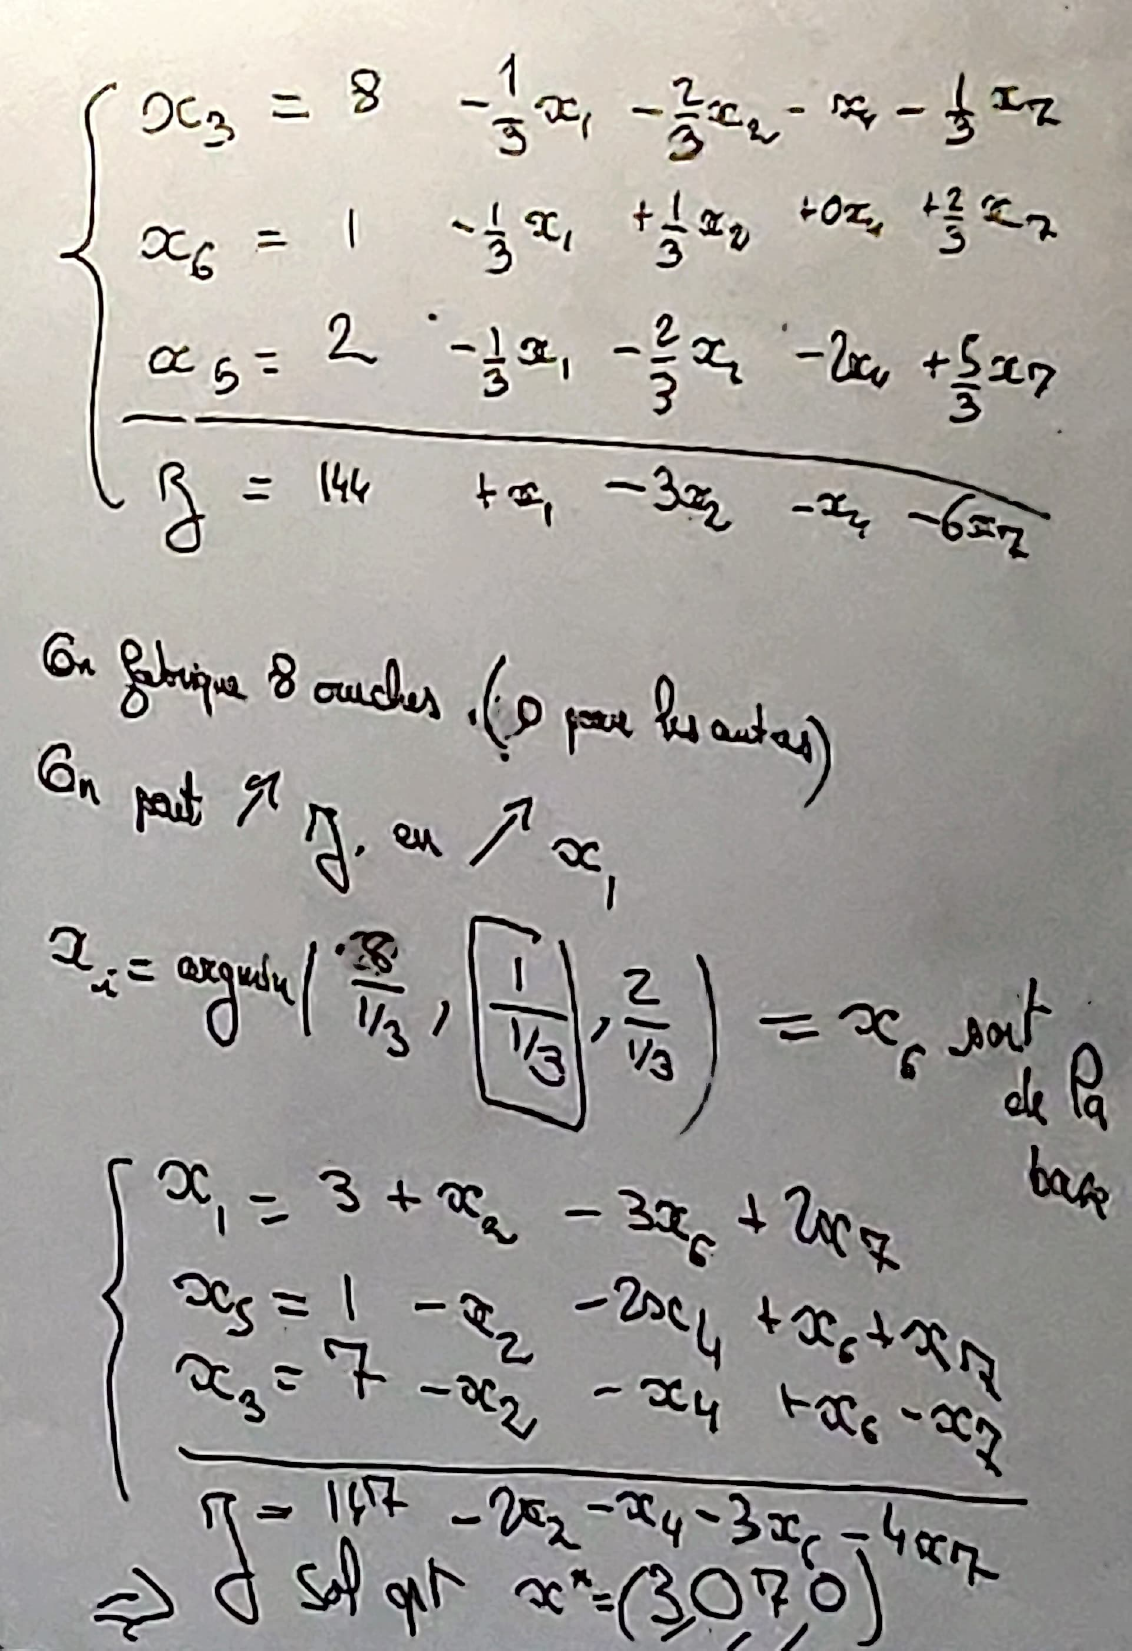 x₃ = 8 - 1/3 x₁ - 2/3 x₂ - x₄ - 1/3 x₇
x₆ = 1 - 1/3 x₁ + 1/3 x₂ + 0x₄ + 2/3 x₇
x₅ = 2 - 1/3 x₁ - 2/3 x₂ - 2x₄ + 5/3 x₇
z = 144 + x₁ - 3x₂ - x₄ - 6x₇
On fabrique 8 ruches. (0 pour les autres)
On peut ↗ z, en ↗ x₁
xᵢ = argmin( 8/(1/3), 1/(1/3), 2/(1/3) ) = x₆ sort
de la
base
x₁ = 3 + x₂ - 3x₆ + 2x₇
x₅ = 1 - x₂ - 2x₄ + x₆ + x₇
x₃ = 7 - x₂ - x₄ + x₆ - x₇
z = 147 - 2x₂ - x₄ - 3x₆ - 4x₇
⇒ sol opt x* = (3,0,7,0)